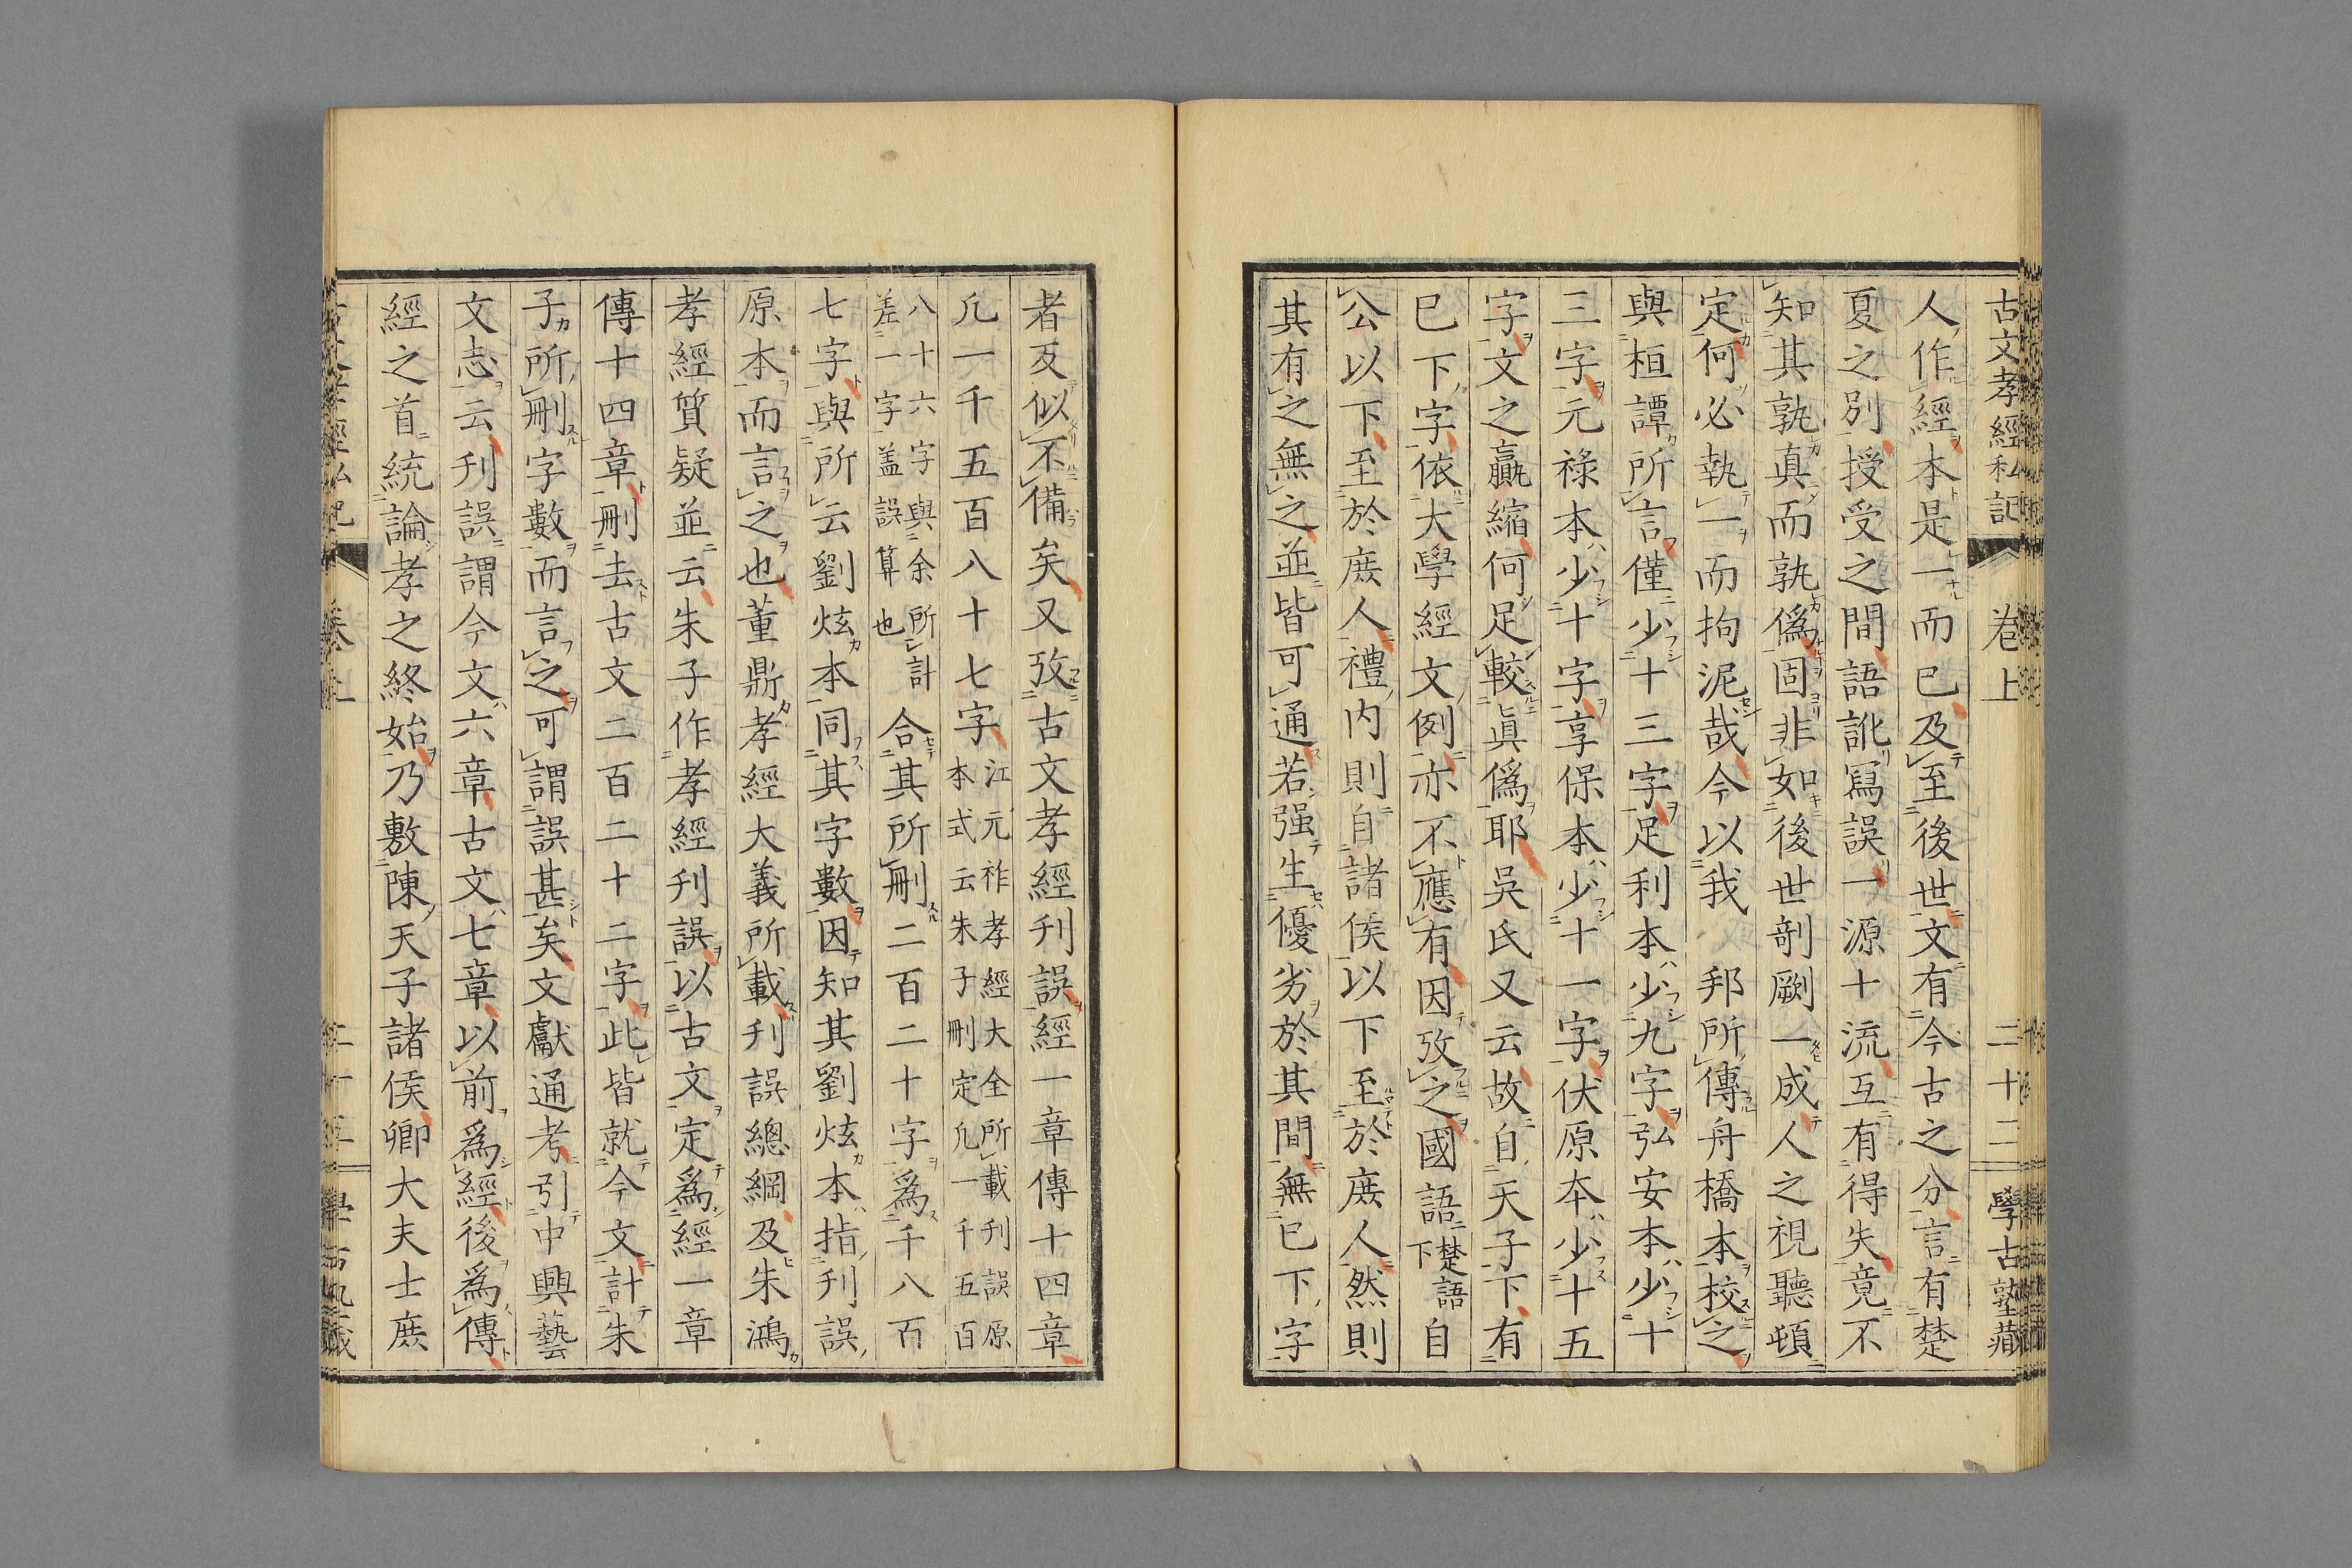 古文孝經私記 卷上 二十二 學古塾藏
人作經本是一而已及至後世文有今古之分言有楚
夏之別授受之間語訛寫誤一源十流互有得失竟不
知其孰真而孰僞固非如後世剞劂一成人之視聽頓
定何必執一而拘泥哉今以我 邦所傳舟橋本校之
與桓譚所言僅少十三字足利本少九字弘安本少十
三字元祿本少十字享保本少十一字伏原本少十五
字文之贏縮何足較眞僞耶吳氏又云故自天子下有
已下字依大學經文例亦不應有因攷之國語楚語下自
公以下至於庶人禮內則自諸侯以下至於庶人然則
其有之無之並皆可通若强生優劣於其間無已下字
者反似不備矣又攷古文孝經刋誤經一章傳十四章
凡一千五百八十七字江元祚孝經大全所載刋誤原本式云朱子刪定凡一千五百
八十六字與余所計差一字盖誤算也合其所刪二百二十字爲千八百
七字與所云劉炫本同其字數因知其劉炫本指刋誤
原本而言之也董鼎孝經大義所載刋誤總綱及朱鴻
孝經質疑並云朱子作孝經刋誤以古文定爲經一章
傳十四章刪去古文二百二十二字此皆就今文計朱
子所刪字數而言之可謂誤甚矣文獻通考引中興藝
文志云刋誤謂今文六章古文七章以前爲經後爲傳
經之首統論孝之終始乃敷陳天子諸侯卿大夫士庶